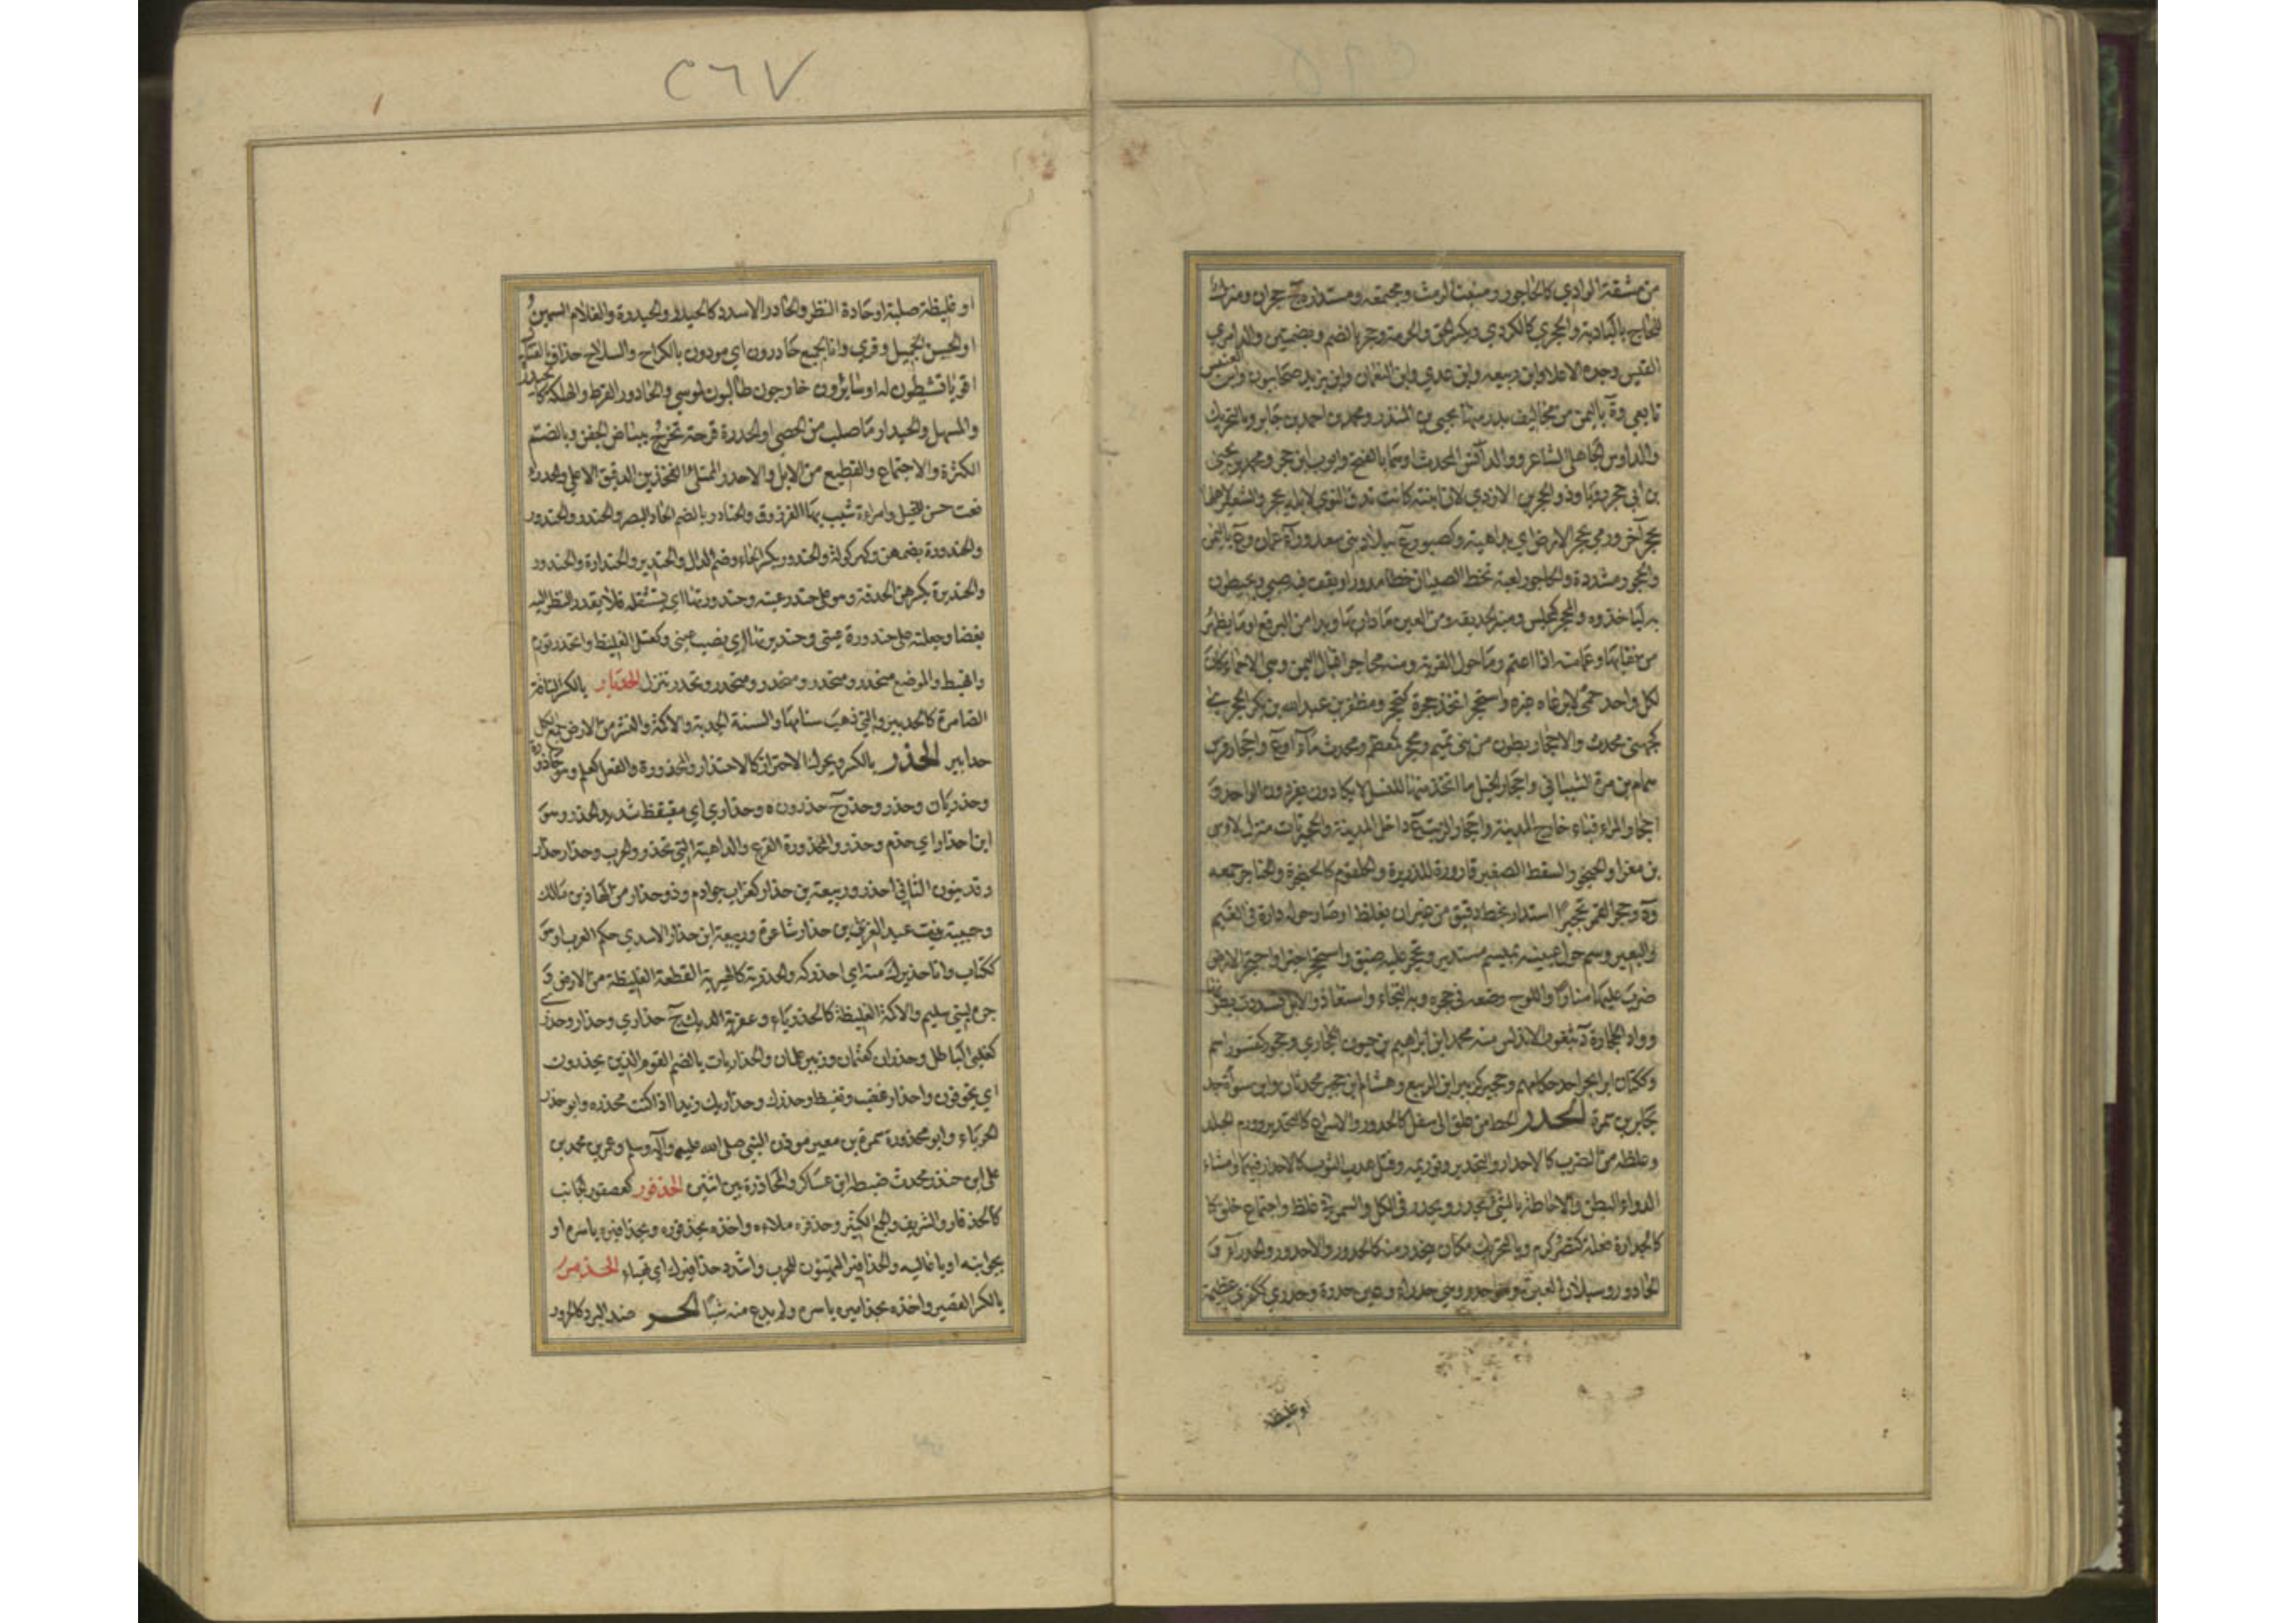 من مشقة الوادي كالحاجور ومنبت الرمث ومجتمعه ومستداره ج حجران ومنزل
للحاج بالبادية والحجري كالكردي ويكسر الحق والحرمة وحجر بالضم وبضمتين والد امرئ
القيس وجده الاعلا وابن ربيعه وابن عدي وابن النعمان وابن يزيد صحابيون وابن العنبس
تابعي وة باليمن من مخاليف بدر منها يحيى بن المنذر ومحمد بن احمد بن جابر وبالتحريك
والد اوس الجاهلي الشاعر ووالد انس المحدث اوهما بالفتح وايوب ابن حجر ومحمد بن يحيى
بن ابي حجر رويا وذو الحجرين الازدي لان ابنته كانت تدق النوى لابله بحجر والشعير لاهلها
بحجر آخر ورمي بحجر الارض اي بداهية وكصبور ع ببلاد بني سعد وراء عمان وع باليمن
والحجورة مشددة والحاجورة لعبة تخط الصبيان خطا مدورا ويقف فيه صبي ويحيطون
به ليأخذوه والمحجر كمجلس ومنبر الحديقه ومن العين ما دار بها وبدا من البرقع او ما يظهر
من نقابها وعمامته اذا اعتم وما حول القرية ومنه محاجر اقبال اليمن وهي الاحماء كان
لكل واحد حمى لا يرعاه غيره واستحجر اتخذ حجرة كتحجر ومظفر بن عبد الله بن بكر الحجري
كجهني محدث والاحجار بطون من بني تميم ومحجر كمعظم ومحدث ماء او ع واحجار فرس
همام بن مرة الشيباني واحجار الخيل ما اتخذ منها للنسل لا يكادون يفردون الواحد و
احجار المراء قباء خارج المدينة واحجار الزيت ع داخل المدينة والحجيرات منزل لاوس
بن مغراء والحنجر والسقط الصغير قارورة للذريرة والحلقوم كالحنجرة والحناجر جمعه
وة وحجر القمر تحجيرا استدار بخط دقيق من غير ان يغلظ او صار حوله دارة في الغيم
والبعير وسم حول عينيه بميسم مستدير وتحجر عليه ضيق واستحجر اجترا واحتجر الارض
ضرب عليها منارا واللوح وضعه في حجره وبه التجاء واستعاذ والابل تشددت بطونها
ووادي الحجارة د بثغور الاندلس منه محمد ابن ابراهيم بن حيون الحجاري وحجور كقسور اسم
وككتان ابن ابجر احد حكامهم وحجير كزبير ابن الربيع وهشام ابن حجير محدثان وابن سواءة جد
لجابر بن سمرة الحدر الحط من علو الى سفل كالحدور والاسراع كالتحدير وورم الجلد
وغلظه من الضرب كالاحدار والتحدير وتوريمه وفتل هدب الثوب كالاحدار فيهما وامشاء
الدواء البطن والاحاطة بالشئ يحدر ويحدر في الكل والسمن في غلظ واجتماع خلق كا
كالحدارة فعله كنصر وكرم وبالتحريك مكان ينحدر منه كالحدور والاحدور والحدراء و
الحادور وسيلان العين وهو احدر وهي حدراء وعين حدرة وحدرى ككفرى عظيمة
او غليظة
٢٦٧
او غليظة صلبة او حادة النظر والحادر الاسد كالحيدر والحيدرة والغلام السمين
او الحسن الجميل وقرئ وانا لجميع حادرون اي مودون بالكراع والسلاح حذاق بالقتال
اقوياء نشيطون له او سائرون خارجون طالبون لموسى والحادور القرط والهلكة كالحيدرة
والمسهل والحيدار ما صلب من الحصى او الحدرة قرحة تخرج ببياض الجفن وبالضم
الكثرة والاجتماع والقطيع من الابل والاحدر الممتلئ الفخذين الدقيق الاعلى والحدراء
نعت حسن للخيل وامراءة شبب بها الفرزدق والحنادر بالضم الحاد البصر والحندر والحندور
والحندورة بضمهن وكهركولة والحندور بكسر الحاء وضم الدال والحندير والحندارة والحندور
والحنديرة بكسرهن الحدقة وهو على حندر عينه وحندورتها اي يستثقله فلا يقدر النظر اليه
بغضا وجعلته على حندورة عيني وحنديرتها اي نصب عيني وكعتل الغليظ وانحدر تورم
وانهبط والموضع منحدر ومنحدر ومنحدر ومنحدر وتحدر تنزل الحدبار بالكسر الناقة
الضامرة كالحدبير والتي ذهب سنامها والسنة الجدبة والاكمة والنشز من الارض جمع الكل
حدابير الحذر بالكسر ويحرك الاحتراز كالاحتذار والمحذورة والفعل كعلم وهو حاذورة
وحذريان وحذر وحذر ج حذرون ه وحذارى اي متيقظ شديد الحذر وهو
ابن احذار اي حزم وحذر والمحذورة الفزع والداهية التي تحذر والحرب وحذار حذار
وقد ينون الثاني احذر وربيعة بن حذار كغراب جوادم وذو حذار من الهاذين مالك
وحبيبة بنت عبد العزى بن حذار شاعرة وربيعة ابن حذار الاسدي حكم العرب او هو
ككتاب وانا حذيرك منه اي احذركه والحذرية كالهبرية القطعة الغليظة من الارض و
حرة لبني سليم والاكمة الغليظة كالحذرياء وعفرية الديك ج حذارى وحذار وحذرى
كغلبى الباطل وحذران كعثمان وزبير علمان والحذاريات بالضم القوم الذين يحذرون
اي يخوفون واحذار غضب وتغيظ وحذرك وحذاريك زيدا اذا كنت محذره وابو حذر
الحرباء وابو محذورة سمرة بن معير موذن النبي صلى الله عليه وآله وسلم وعمر بن محمد بن
على ابن حيذر محدث ضبطه ابن عساكر والمحاذرة بين اثنين الحذفور كعصفور الجانب
كالحذفار والشريف والجمع الكثير وحذفره ملاءه واخذه بحذفوره وبحذافيره باسره او
بجوانبه او باعاليه والحذافير المتهيئون للحرب واشدد حذافيرك اي تهياء الحذمير
بالكسر القصير واخذه بحذاميره باسره ولم يدع منه شيئا الحر ضد البرد كالحرور